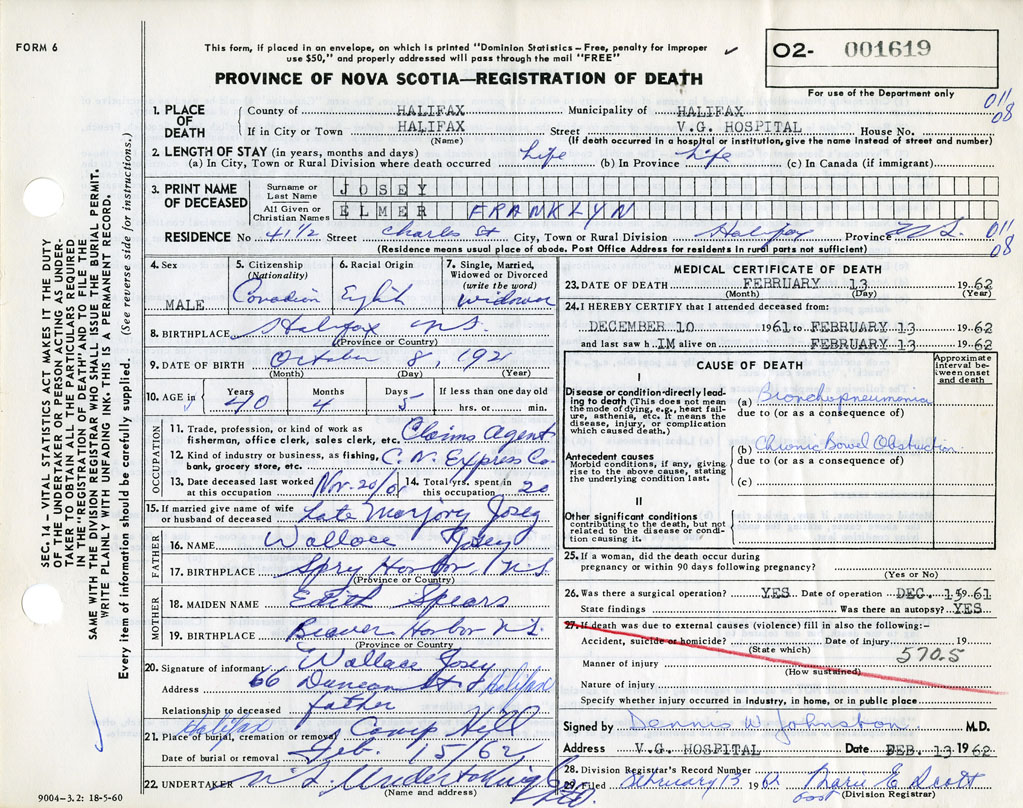 FORM 6
This form, if placed in an envelope, on which is printed "Dominion Statistics – Free, penalty for improper
use $50," and properly addressed will pass through the mail "FREE"
PROVINCE OF NOVA SCOTIA—REGISTRATION OF DEATH
O2- 001619
For use of the Department only
011
08
SEC. 14 – VITAL STATISTICS ACT MAKES IT THE DUTY
OF THE UNDERTAKER OR PERSON ACTING AS UNDER-
TAKER TO OBTAIN ALL THE PARTICULARS REQUIRED
IN THE "REGISTRATION OF DEATH" AND TO FILE THE
SAME WITH THE DIVISION REGISTRAR WHO SHALL ISSUE THE BURIAL PERMIT.
WRITE PLAINLY WITH UNFADING INK. THIS IS A PERMANENT RECORD.
Every item of information should be carefully supplied. (See reverse side for instructions.)
1. PLACE OF DEATH
County of HALIFAX Municipality of HALIFAX
If in City or Town HALIFAX Street V.G. HOSPITAL House No.
(Name) (If death occurred in a hospital or institution, give the name instead of street and number)
2. LENGTH OF STAY (in years, months and days)
(a) In City, Town or Rural Division where death occurred Life (b) In Province Life (c) In Canada (if immigrant)
3. PRINT NAME OF DECEASED
Surname or Last Name JOSEY
All Given or Christian Names ELMER FRANKLYN
RESIDENCE No 41 1/2 Street Charles St City, Town or Rural Division Halifax Province N.S. 011
08
(Residence means usual place of abode. Post Office Address for residents in rural parts not sufficient)
4. Sex MALE
5. Citizenship (Nationality) Canadian
6. Racial Origin English
7. Single, Married, Widowed or Divorced (write the word) widower
8. BIRTHPLACE Halifax N.S.
(Province or Country)
9. DATE OF BIRTH October 8, 1921
(Month) (Day) (Year)
10. AGE in Years 40 Months 4 Days 5 If less than one day old hrs. or min.
OCCUPATION
11. Trade, profession, or kind of work as
fisherman, office clerk, sales clerk, etc. Claims Agent
12. Kind of industry or business, as fishing,
bank, grocery store, etc. C.N. Express Co
13. Date deceased last worked at this occupation Nov. 20/61 14. Total yrs. spent in this occupation 20
15. If married give name of wife
or husband of deceased Late Marjory Josey
FATHER
16. NAME Wallace Josey
17. BIRTHPLACE Spry Harbor N.S.
(Province or Country)
MOTHER
18. MAIDEN NAME Edith Spears
19. BIRTHPLACE Beaver Harbor N.S.
(Province or Country)
20. Signature of informant Wallace Josey
Address 66 Duncan St Halifax
Relationship to deceased father
21. Place of burial, cremation or removal Halifax Camp Hill
Date of burial or removal Feb. 15/62
22. UNDERTAKER N.S. Undertaking Co Ltd.
(Name and address)
9004-3.2: 18-5-60
MEDICAL CERTIFICATE OF DEATH
23. DATE OF DEATH FEBRUARY 13 1962
(Month) (Day) (Year)
24. I HEREBY CERTIFY that I attended deceased from:
DECEMBER 10 1961 to FEBRUARY 13 1962
and last saw h IM alive on FEBRUARY 13 1962
CAUSE OF DEATH
Approximate interval between onset and death
I
Disease or condition directly lead-
ing to death (This does not mean
the mode of dying, e.g., heart fail-
ure, asthenia, etc. It means the
disease, injury, or complication
which caused death.)
(a) Bronchopneumonia
due to (or as a consequence of)
(b) Chronic Bowel Obstruction
due to (or as a consequence of)
(c)
Antecedent causes
Morbid conditions, if any, giving
rise to the above cause, stating
the underlying condition last.
II
Other significant conditions
contributing to the death, but not
related to the disease or condi-
tion causing it.
25. If a woman, did the death occur during
pregnancy or within 90 days following pregnancy?
(Yes or No)
26. Was there a surgical operation? YES Date of operation DEC. 15 1961
State findings Was there an autopsy? YES
27. If death was due to external causes (violence) fill in also the following:-
Accident, suicide or homicide? Date of injury 19
(State which) 570.5
Manner of injury
(How sustained)
Nature of injury
Specify whether injury occurred in Industry, in home, or in public place
Signed by Dennis W Johnston M.D.
Address V.G. HOSPITAL Date FEB. 13 1962
28. Division Registrar's Record Number
29. Filed February 13 1962 Marie E Scott
(Division Registrar)